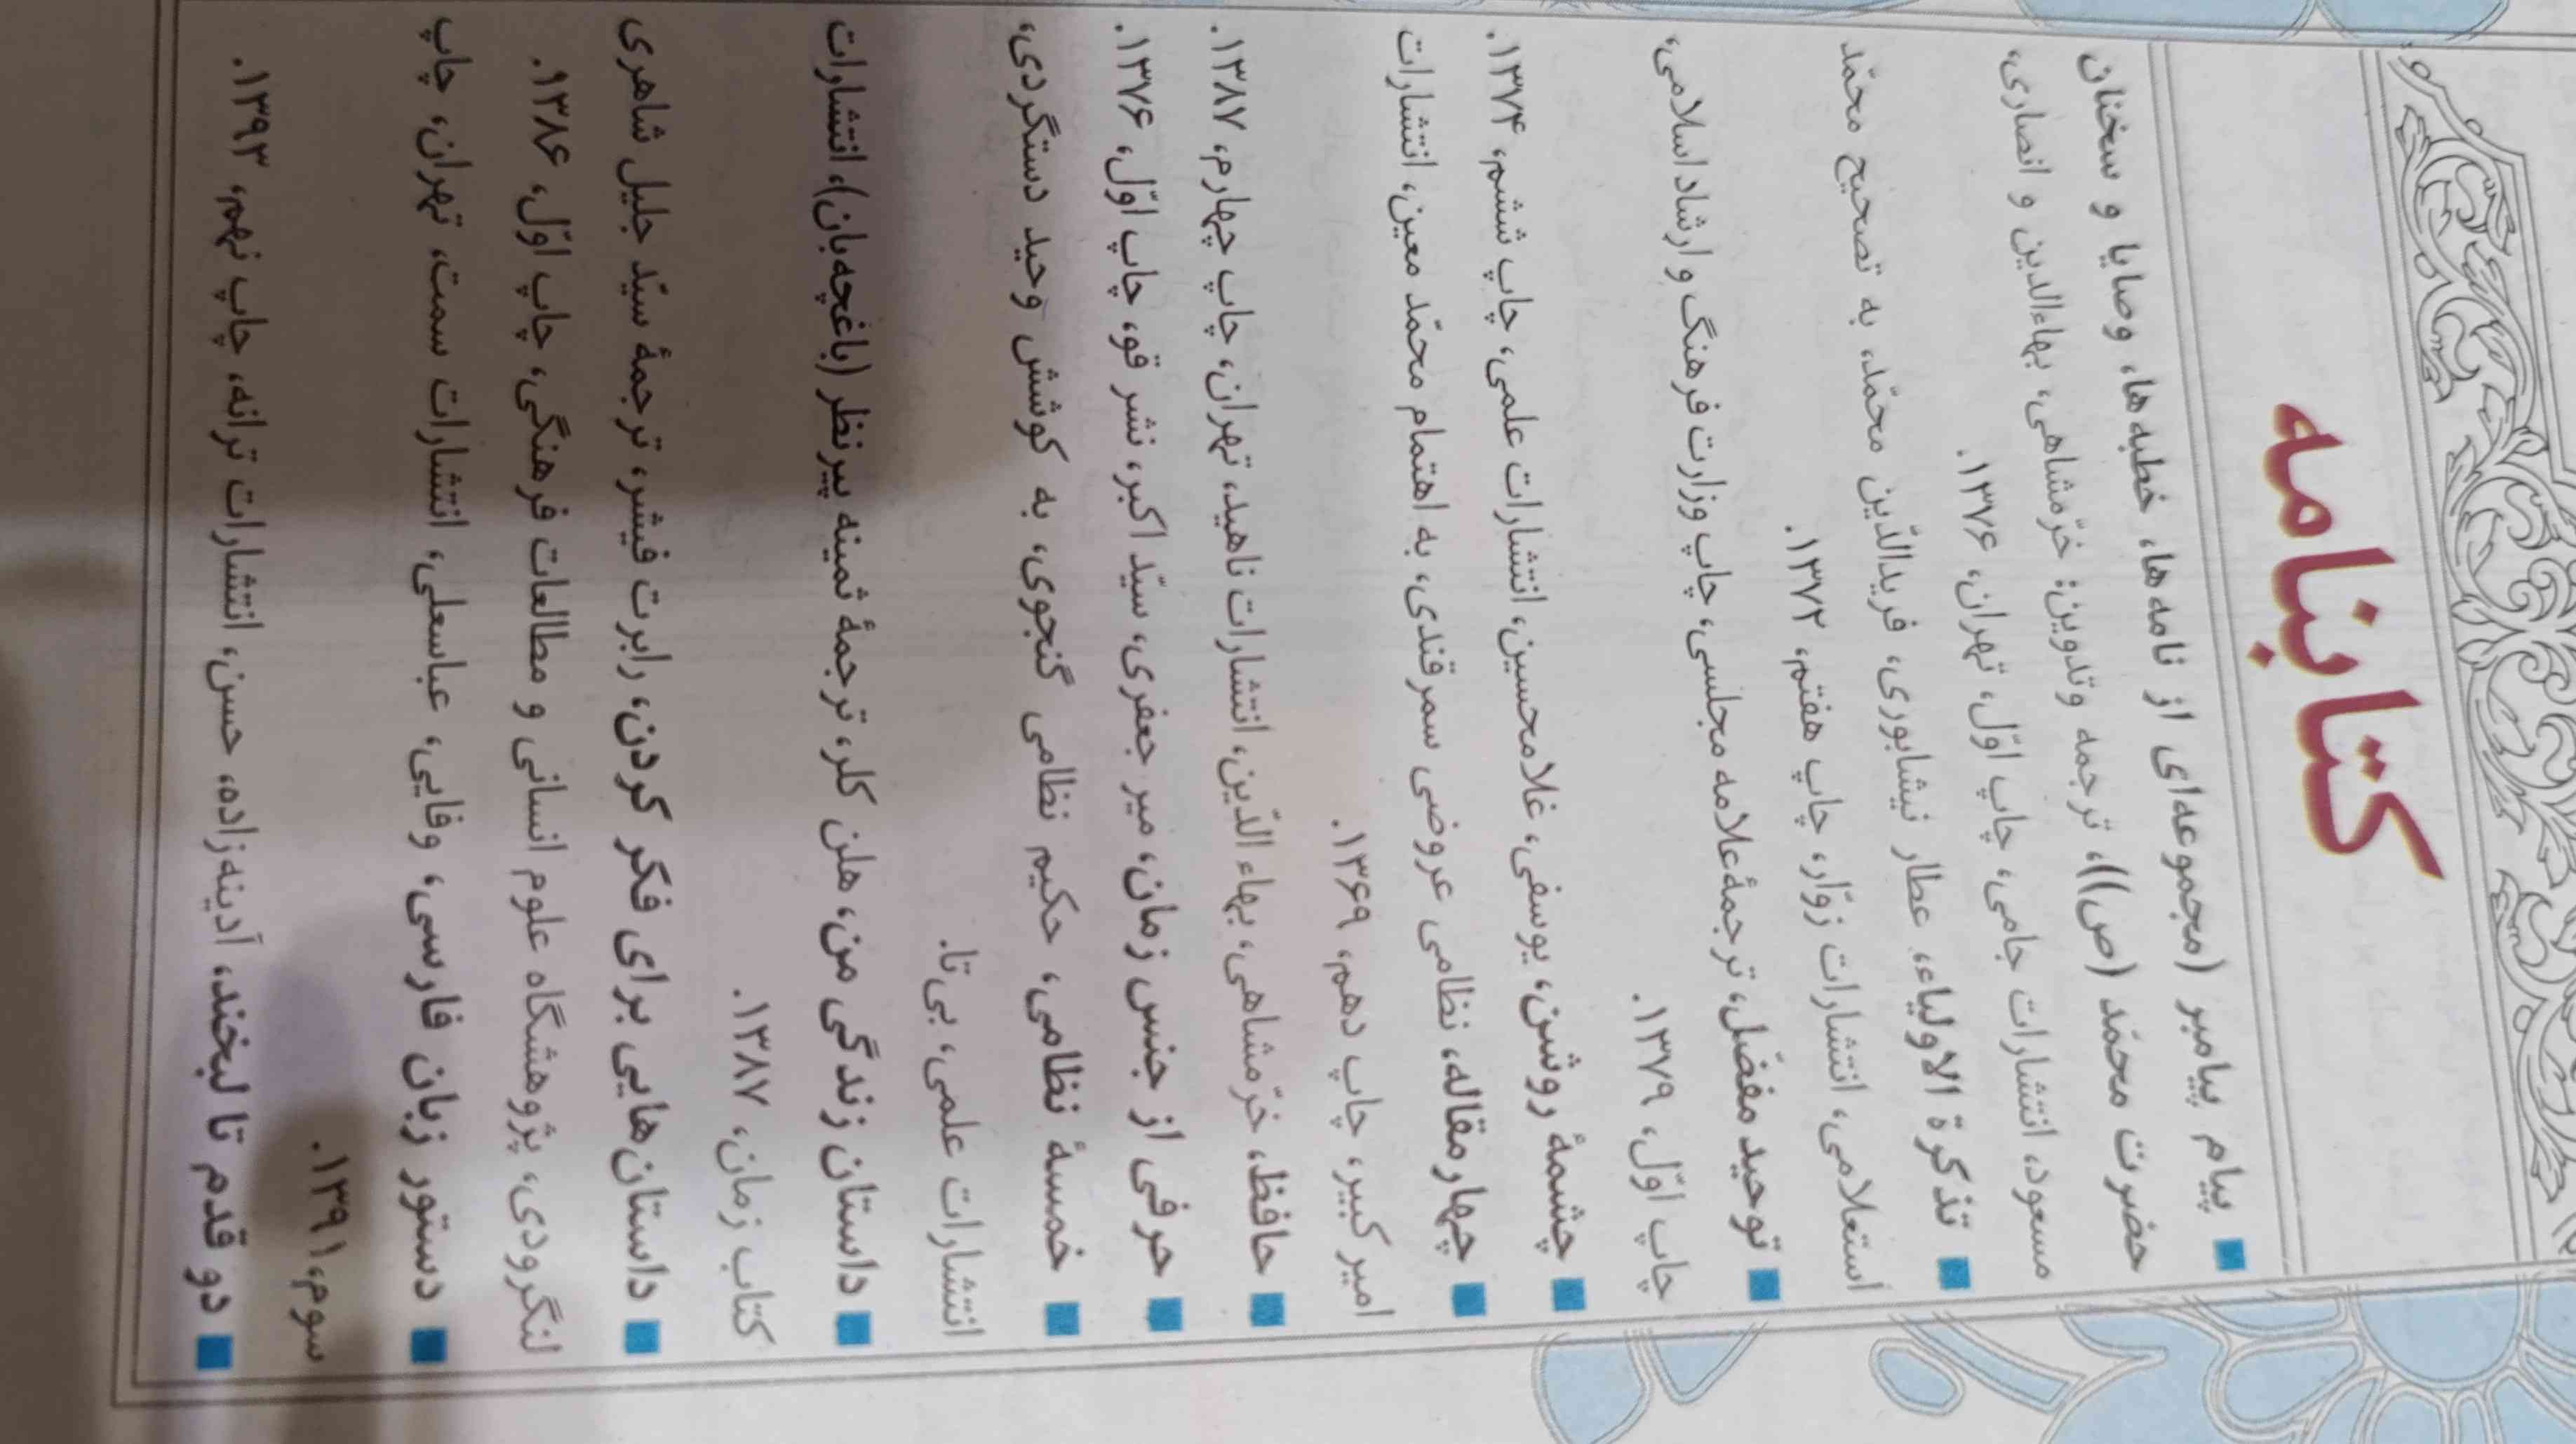 کتابنامه
■ پیام پیامبر (مجموعه‌ای از نامه‌ها، خطبه‌ها، وصایا و سخنان
حضرت محمّد (ص))، ترجمه وتدوین: خرّمشاهی، بهاءالدین و انصاری،
مسعود، انتشارات جامی، چاپ اوّل، تهران، ۱۳۷۶.
■ تذکرة الاولیاء، عطار نیشابوری، فریدالدّین محمّد، به تصحیح محمّد
استعلامی، انتشارات زوّار، چاپ هفتم، ۱۳۷۲.
■ توحید مفضّل، ترجمهٔ علامه مجلسی، چاپ وزارت فرهنگ و ارشاد اسلامی،
چاپ اوّل، ۱۳۷۹.
■ چشمهٔ روشن، یوسفی، غلامحسین، انتشارات علمی، چاپ ششم، ۱۳۷۴.
■ چهار مقاله، نظامی عروضی سمرقندی، به اهتمام محمّد معین، انتشارات
امیر کبیر، چاپ دهم، ۱۳۶۹.
■ حافظ، خرّمشاهی، بهاء الدّین، انتشارات ناهید، تهران، چاپ چهارم، ۱۳۸۷.
■ حرفی از جنس زمان، میر جعفری، سیّد اکبر، نشر قو، چاپ اوّل، ۱۳۷۶.
■ خمسهٔ نظامی، حکیم نظامی گنجوی، به کوشش وحید دستگردی،
انتشارات علمی، بی‌تا.
■ داستان زندگی من، هلن کلر، ترجمهٔ ثمینه پیرنظر (باغچه‌بان)، انتشارات
کتاب زمان، ۱۳۸۷.
■ داستان‌هایی برای فکر کردن، رابرت فیشر، ترجمهٔ سیّد جلیل شاهری
لنگرودی، پژوهشگاه علوم انسانی و مطالعات فرهنگی، چاپ اوّل، ۱۳۸۶.
■ دستور زبان فارسی، وفایی، عباسعلی، انتشارات سمت، تهران، چاپ
سوم، ۱۳۹۱.
■ دو قدم تا لبخند، آدینه‌زاده، حسن، انتشارات ترانه، چاپ نهم، ۱۳۹۳.